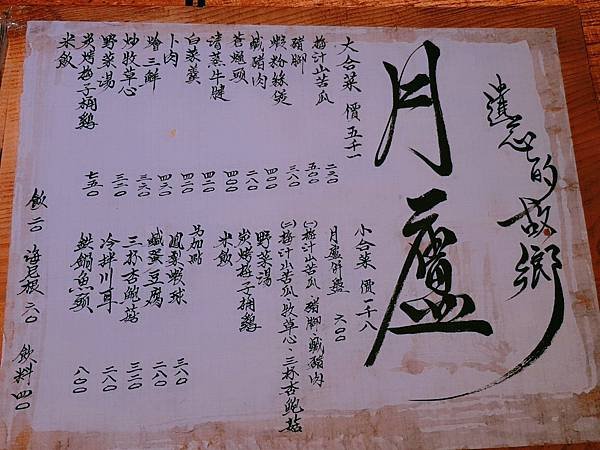 遺忘的故鄉
月廬
大合菜 價五千一
梅汁山苦瓜 二三〇
豬腳 五〇〇
蝦粉絲煲 三八〇
鹹豬肉 四〇〇
清蒸牛腱 四〇〇
白菜羹 四二〇
卜肉 四二〇
燴三鮮 四六〇
炒牧草心 三六〇
野菜湯 三二〇
炭烤梅子桶雞 七五〇
米飯
小合菜 價一千八
月廬併盤 六〇〇
㈠梅汁山苦瓜、豬腳、鹹豬肉
㈡梅汁山苦瓜、牧草心、三杯杏鮑菇
野菜湯
炭烤梅子桶雞
米飯
另加點
鳳梨蝦球 三六〇
鹹蛋豆腐 二八〇
三杯杏鮑菇 三二〇
冷拌川耳 二八〇
鐵鍋魚頭 八〇〇
飯二〇 海尼根六〇 飲料四〇